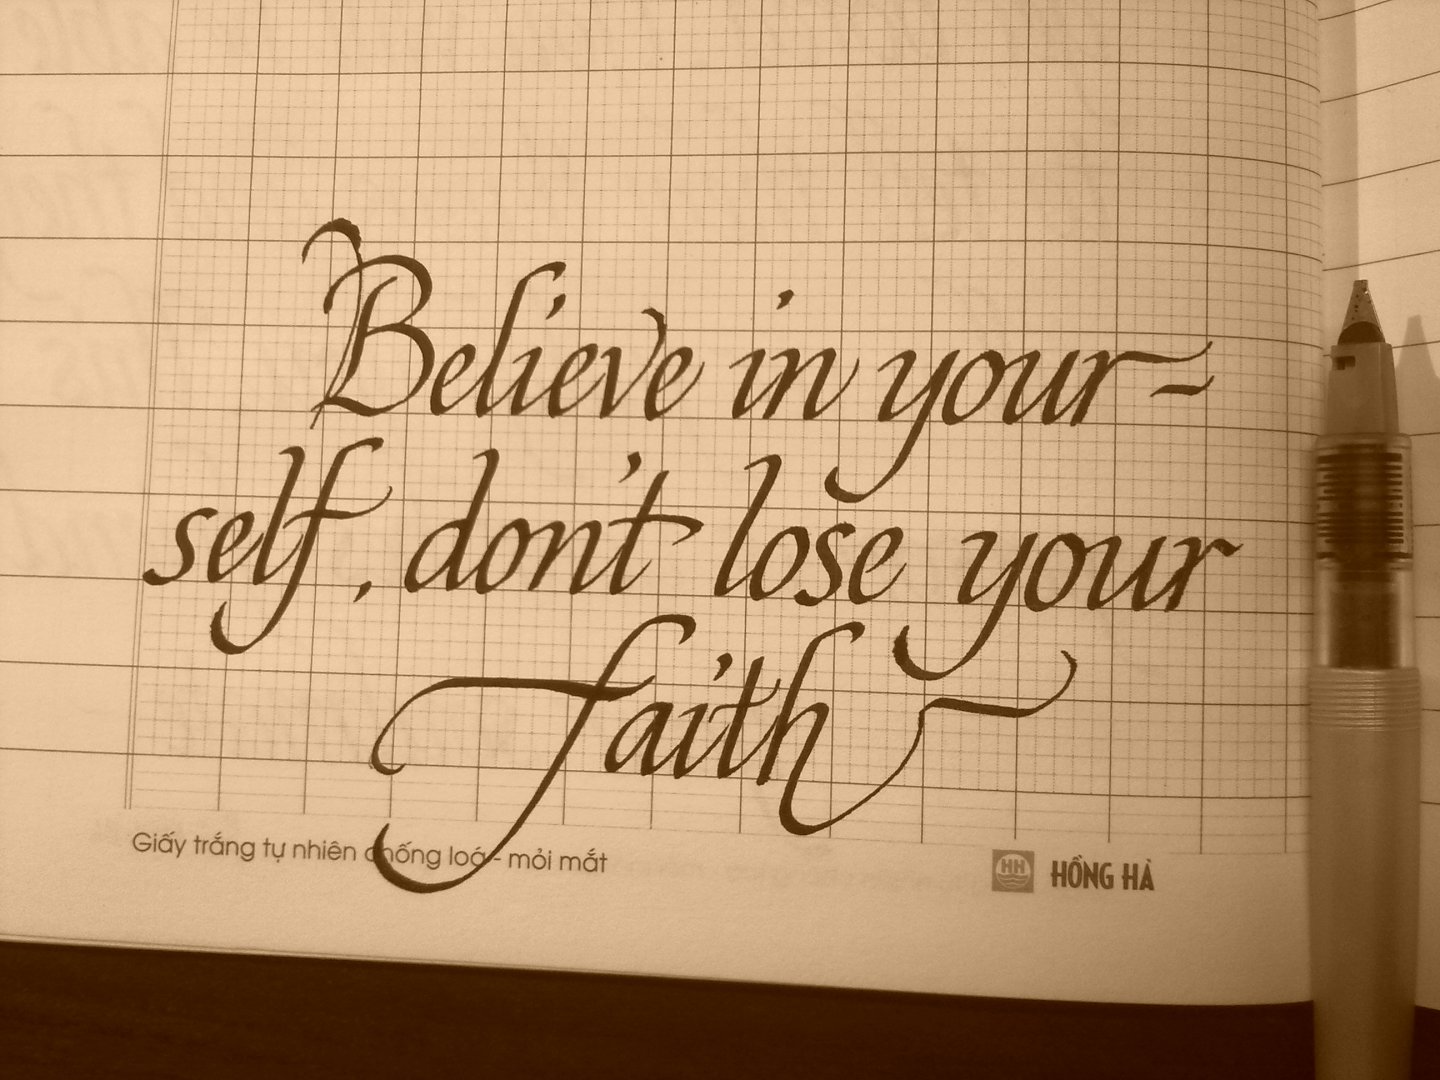 Believe in your-
self, don't lose your
faith
Giấy trắng tự nhiên chống loá - mỏi mắt
HH HỒNG HÀ